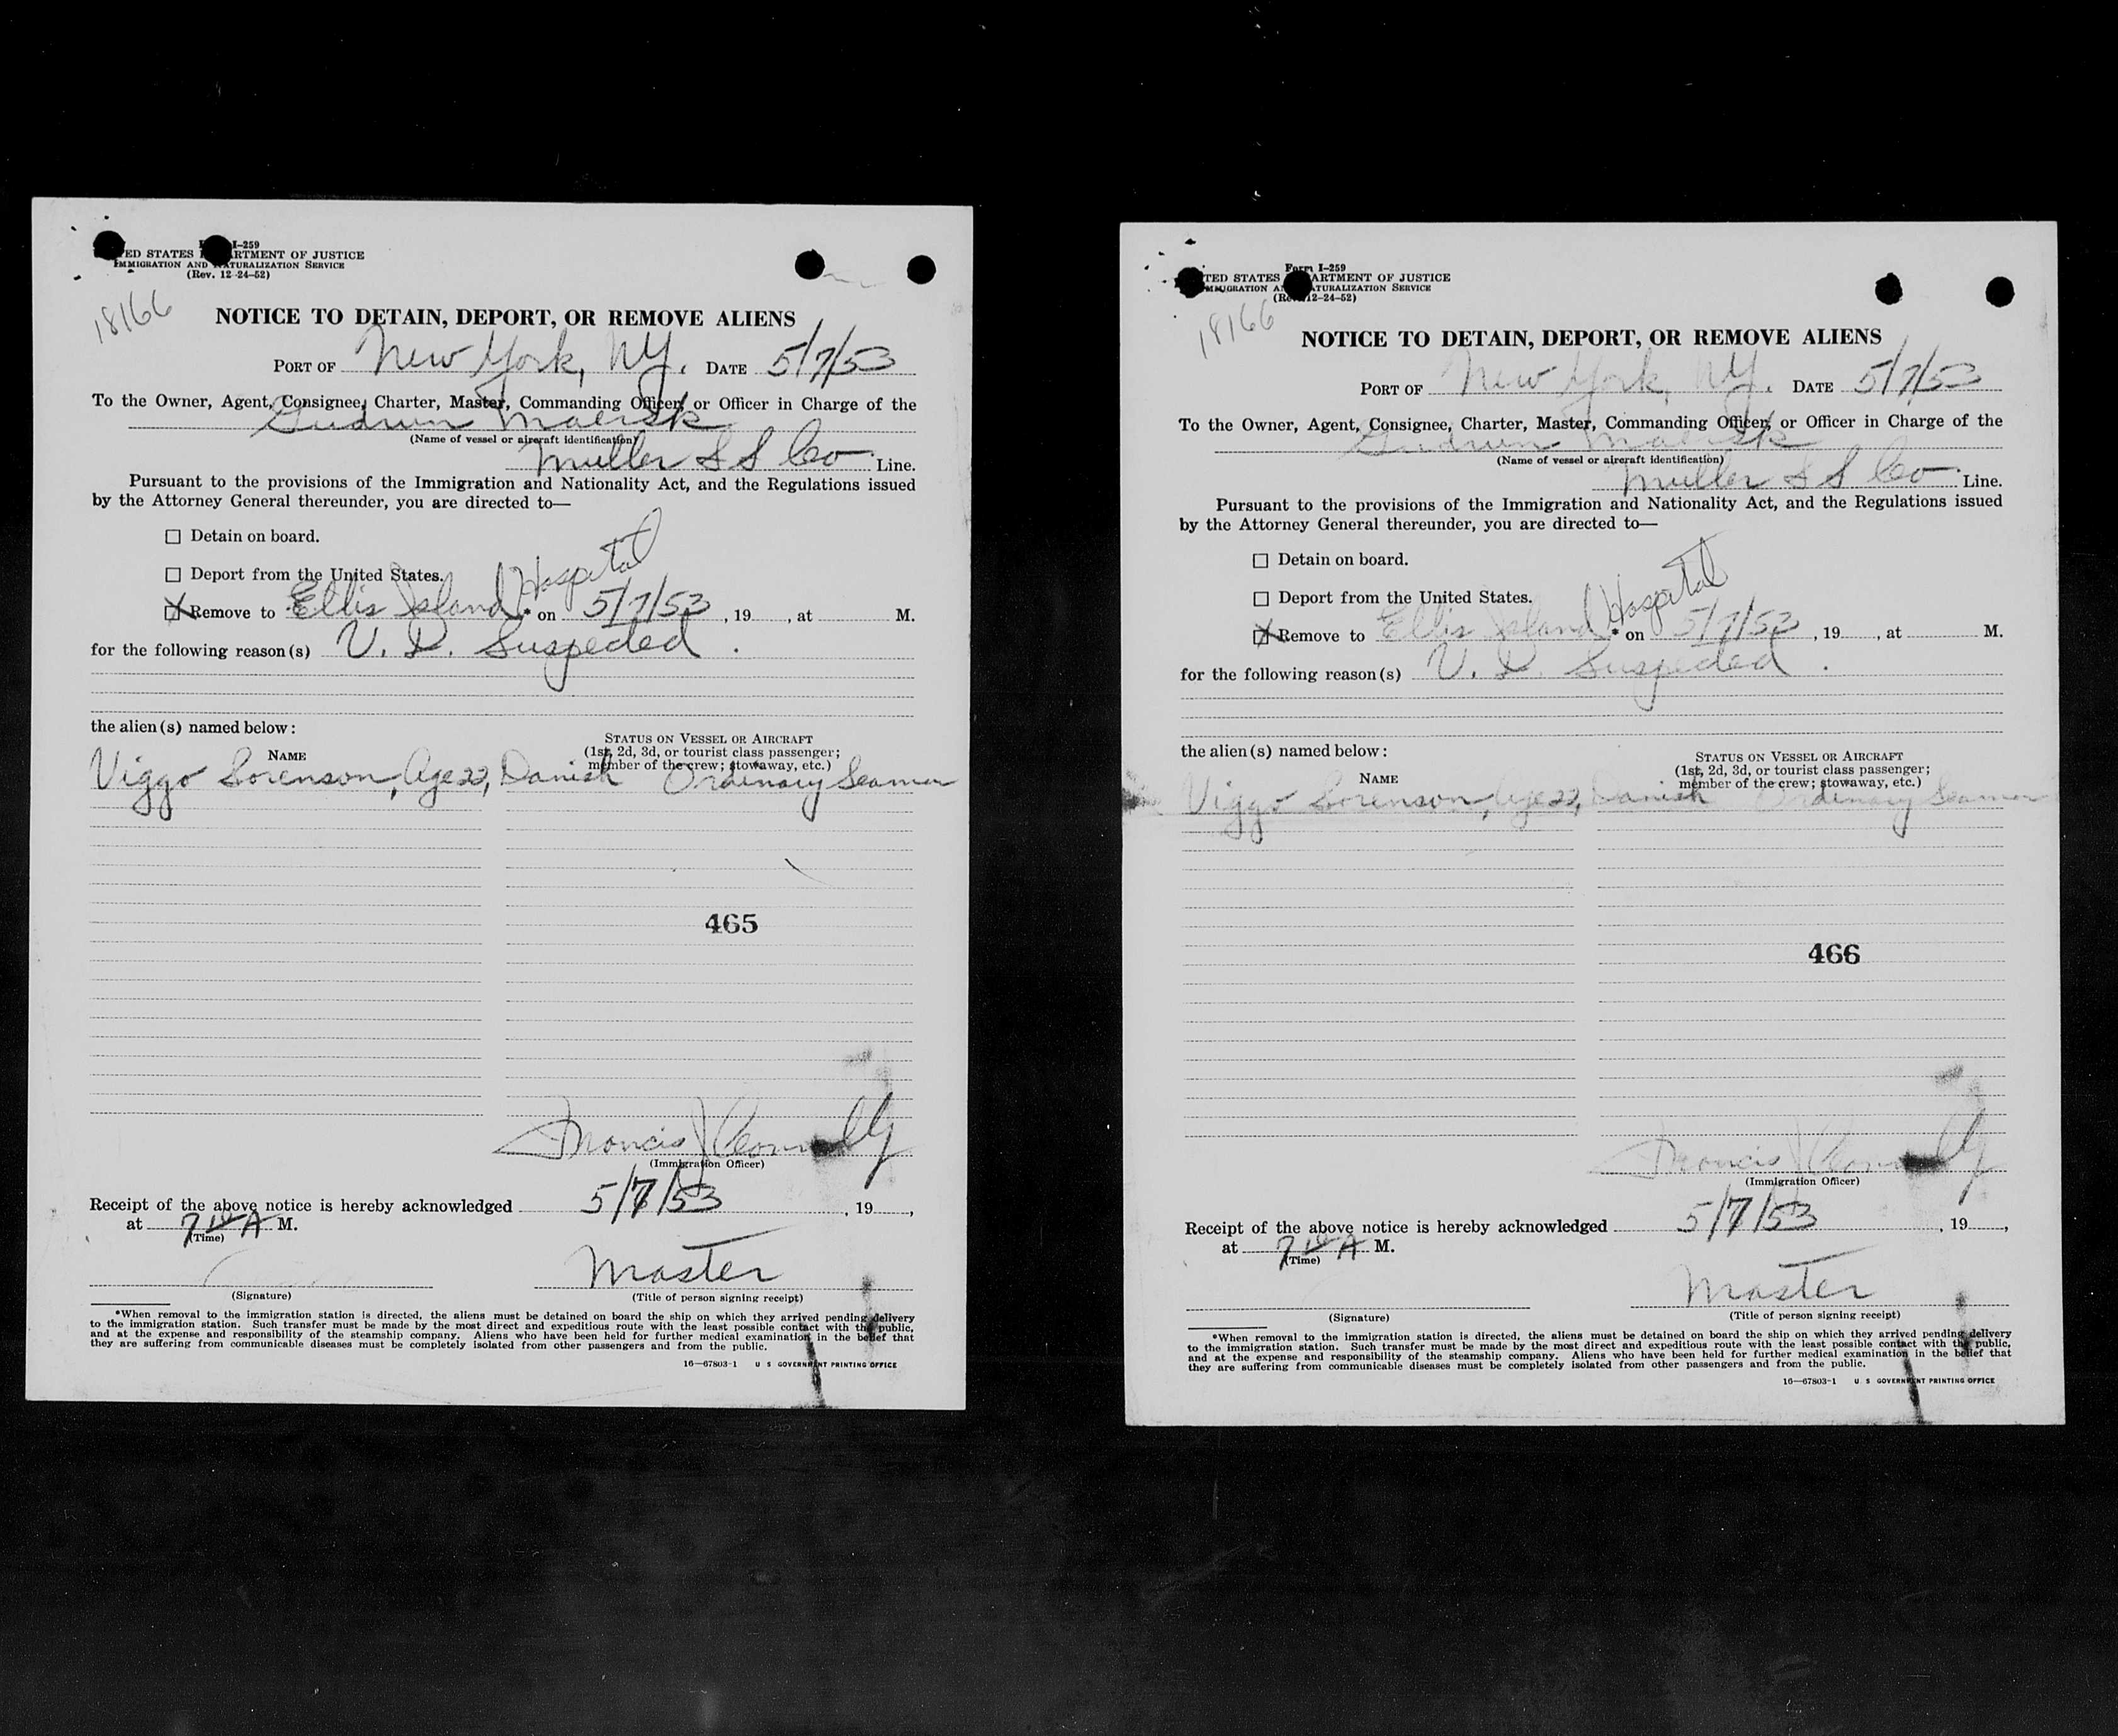 I-259
TED STATES RTMENT OF JUSTICE
IMMIGRATION AND NATURALIZATION SERVICE
(Rev. 12-24-52)
18166
NOTICE TO DETAIN, DEPORT, OR REMOVE ALIENS
PORT OF New York, NY. DATE 5/7/53
To the Owner, Agent, Consignee, Charter, Master, Commanding Officer, or Officer in Charge of the
Gudrun Maersk
(Name of vessel or aircraft identification)
Muller S S Co Line.
Pursuant to the provisions of the Immigration and Nationality Act, and the Regulations issued
by the Attorney General thereunder, you are directed to—
☐ Detain on board.
☐ Deport from the United States.
☒ Remove to Ellis Island Hospital * on 5/7/53, 19, at M.
for the following reason(s) V. D. Suspected.
the alien(s) named below:
NAME
STATUS ON VESSEL OR AIRCRAFT
(1st, 2d, 3d, or tourist class passenger;
member of the crew; stowaway, etc.)
Viggo Sorenson, Age 22, Danish Ordinary Seaman
465
Francis J Connelly
(Immigration Officer)
Receipt of the above notice is hereby acknowledged 5/7/53, 19,
at 7 10 A M.
(Time)
Master
(Signature)
(Title of person signing receipt)
*When removal to the immigration station is directed, the aliens must be detained on board the ship on which they arrived pending delivery
to the immigration station. Such transfer must be made by the most direct and expeditious route with the least possible contact with the public,
and at the expense and responsibility of the steamship company. Aliens who have been held for further medical examination in the belief that
they are suffering from communicable diseases must be completely isolated from other passengers and from the public.
16—67803-1 U S GOVERNMENT PRINTING OFFICE
Form I-259
TED STATES DEPARTMENT OF JUSTICE
IMMIGRATION AND NATURALIZATION SERVICE
(Rev. 12-24-52)
18166
NOTICE TO DETAIN, DEPORT, OR REMOVE ALIENS
PORT OF New York, NY. DATE 5/7/53
To the Owner, Agent, Consignee, Charter, Master, Commanding Officer, or Officer in Charge of the
Gudrun Maersk
(Name of vessel or aircraft identification)
Muller S S Co Line.
Pursuant to the provisions of the Immigration and Nationality Act, and the Regulations issued
by the Attorney General thereunder, you are directed to—
☐ Detain on board.
☐ Deport from the United States.
☒ Remove to Ellis Island Hospital * on 5/7/53, 19, at M.
for the following reason(s) V. D. Suspected.
the alien(s) named below:
NAME
STATUS ON VESSEL OR AIRCRAFT
(1st, 2d, 3d, or tourist class passenger;
member of the crew; stowaway, etc.)
Viggo Sorenson, Age 22, Danish Ordinary Seaman
466
Francis J Connelly
(Immigration Officer)
Receipt of the above notice is hereby acknowledged 5/7/53, 19,
at 7 10 A M.
(Time)
Master
(Signature)
(Title of person signing receipt)
*When removal to the immigration station is directed, the aliens must be detained on board the ship on which they arrived pending delivery
to the immigration station. Such transfer must be made by the most direct and expeditious route with the least possible contact with the public,
and at the expense and responsibility of the steamship company. Aliens who have been held for further medical examination in the belief that
they are suffering from communicable diseases must be completely isolated from other passengers and from the public.
16—67803-1 U S GOVERNMENT PRINTING OFFICE